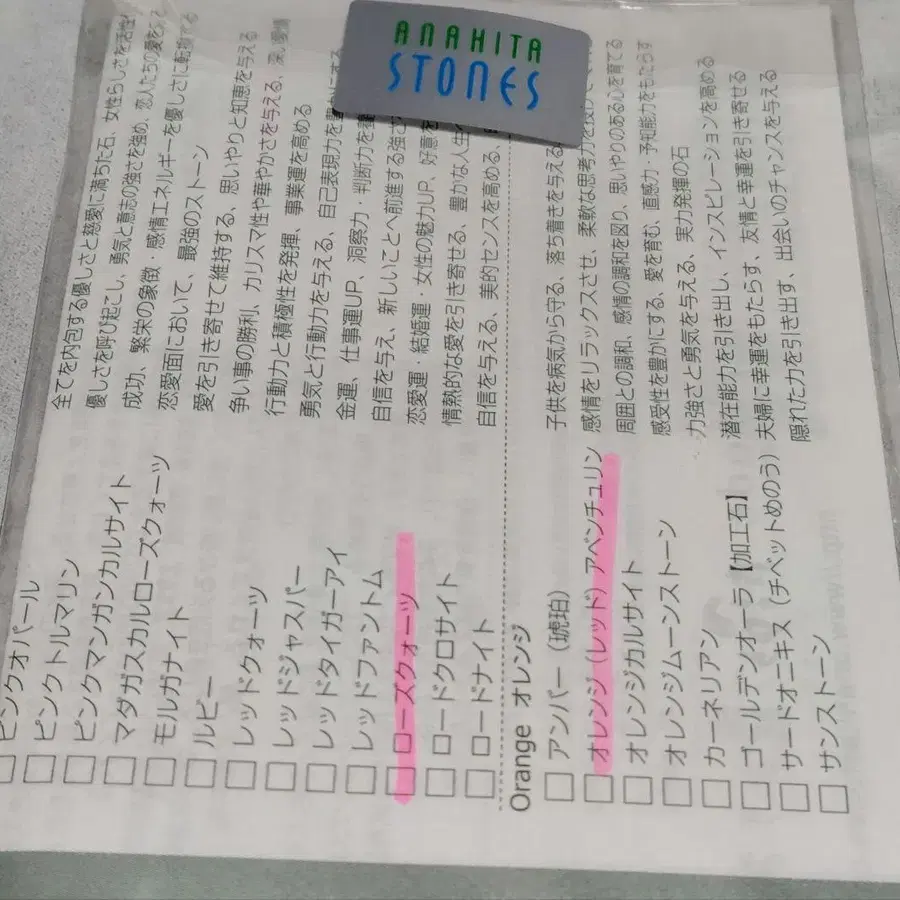 ANAHITA
STONES
ピンクオパール 全てを内包する優しさと慈愛に満ちた石、女性らしさを活性
ピンクトルマリン 優しさを呼び起こし、勇気と意志の強さを強め、恋人たちの愛を
ピンクマンガンカルサイト 成功、繁栄の象徴・感情エネルギーを優しさに転換する
マダガスカルローズクォーツ 恋愛面において、最強のストーン
モルガナイト 愛を引き寄せて維持する、思いやりと知恵を与える
ルビー 争い事の勝利、カリスマ性や華やかさを与える、深い愛情
レッドクォーツ 行動力と積極性を発揮、事業運を高める
レッドジャスパー 勇気と行動力を与える、自己表現力を豊かにする
レッドタイガーアイ 金運、仕事運UP、洞察力・判断力を
レッドファントム 自信を与え、新しいことへ前進する強さ
ローズクォーツ 恋愛運・結婚運・女性の魅力UP、好意を
ロードクロサイト 情熱的な愛を引き寄せる、豊かな人生
ロードナイト 自信を与える、美的センスを高める、
Orange オレンジ
アンバー（琥珀） 子供を病気から守る、落ち着きを与える
オレンジ（レッド）アベンチュリン 感情をリラックスさせ、柔軟な思考力を
オレンジカルサイト 周囲との調和、感情の調和を図り、思いやりのある心を育てる
オレンジムーンストーン 感受性を豊かにする、愛を育む、直感力・予知能力をもたらす
カーネリアン 力強さと勇気を与える、実力発揮の石
ゴールデンオーラ【加工石】 潜在能力を引き出し、インスピレーションを高める
サードオニキス（チベットめのう） 夫婦に幸運をもたらす、友情と幸運を引き寄せる
サンストーン 隠れた力を引き出す、出会いのチャンスを与える